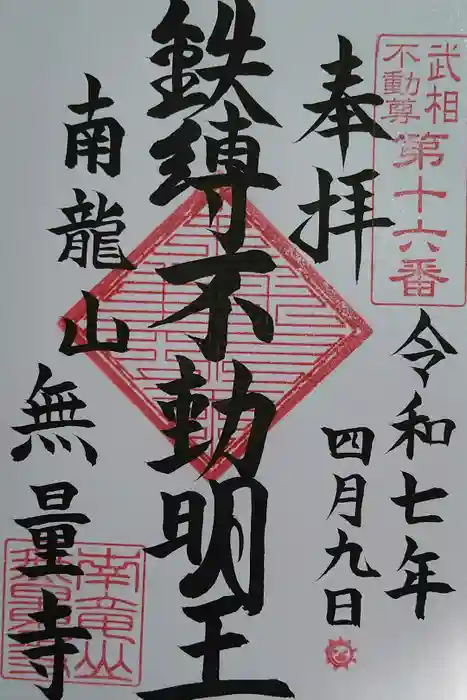 武相
不動尊
第十六番
奉拝
令和七年
四月九日
鉄縛不動明王
南龍山
無量寺